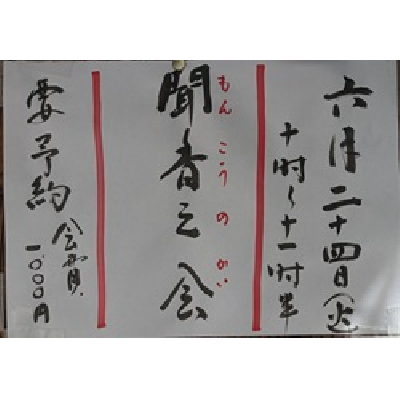 六月二十四日(火)
十時〜十一時半
聞香之会
もんこうのかい
要予約
会費
1,000円